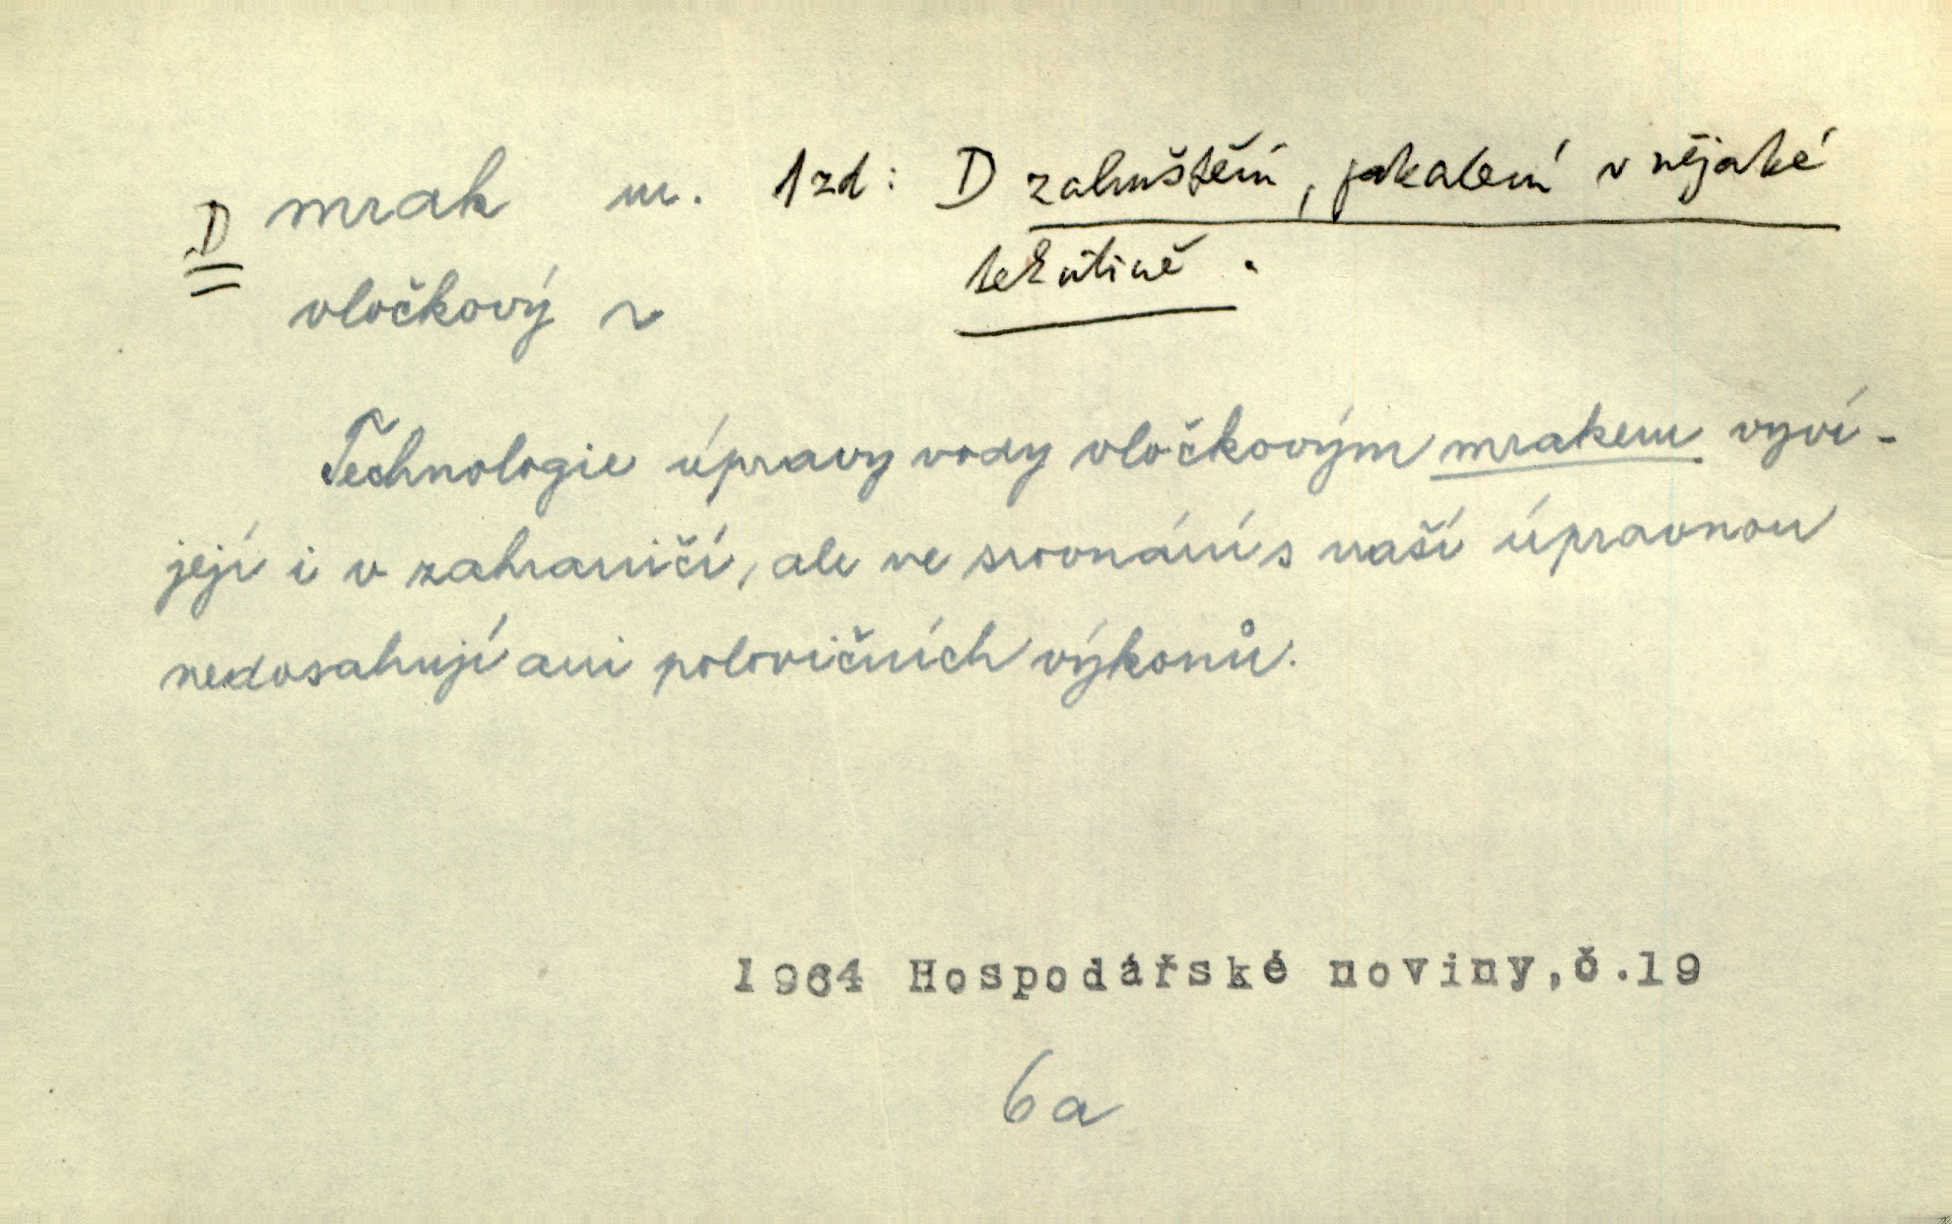 D mrak m. 1zd: D zahuštění, zakalení v nějaké
tekutině.
vločkový ~
Technologie úpravy vody vločkovým mrakem vyví-
její i v zahraničí, ale ve srovnání s naší úpravnou
nedosahují ani polovičních výkonů.
1964 Hospodářské noviny, č.19
6a